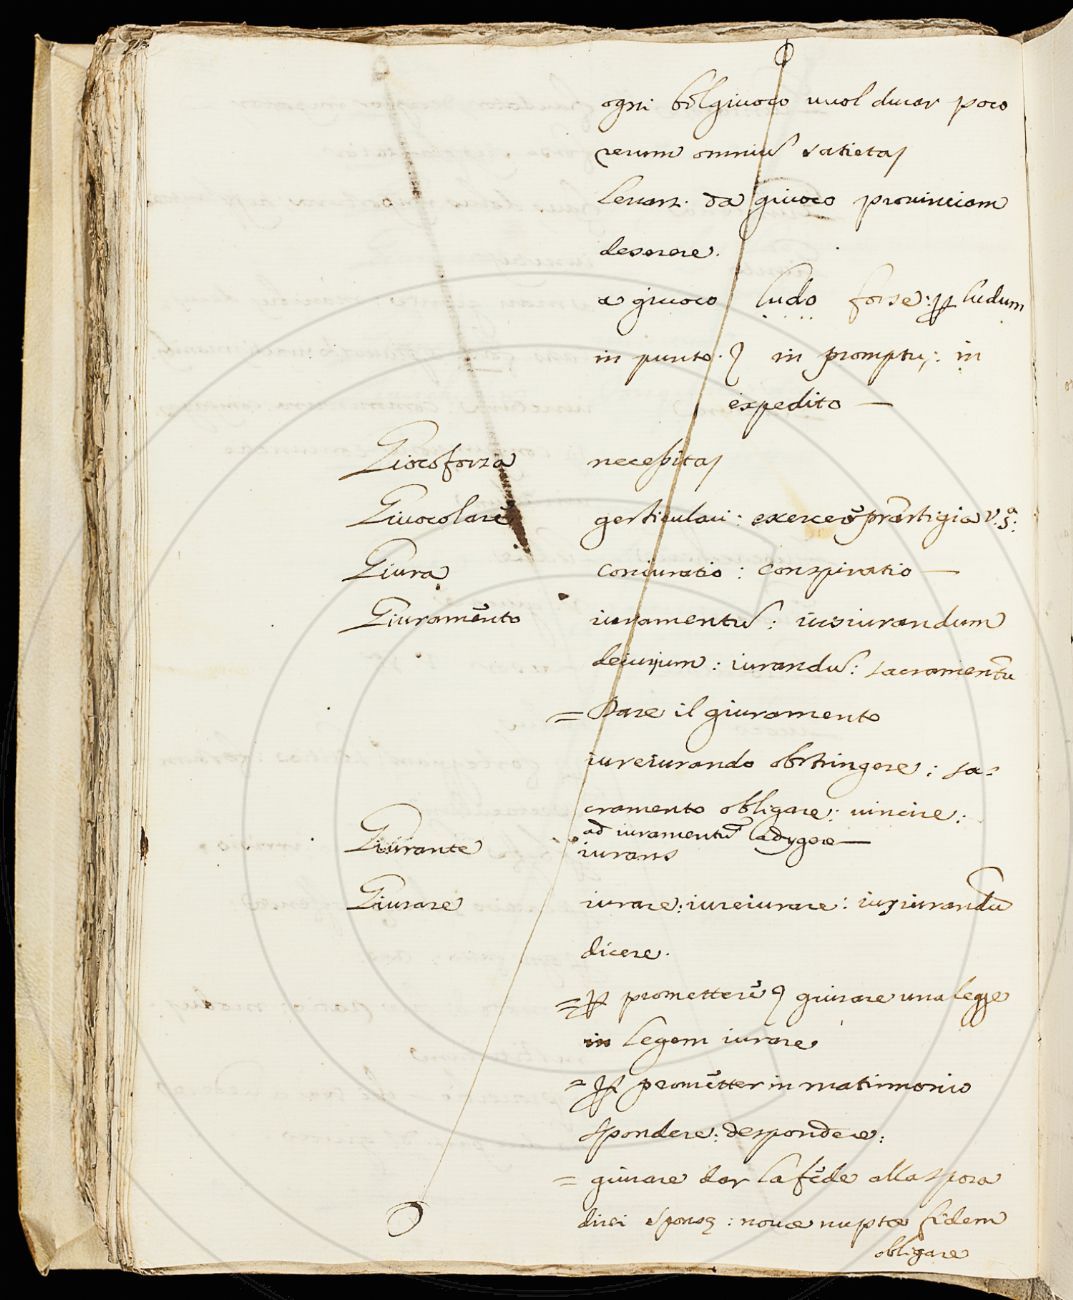 ogni bel giuoco vuol durar poco
rerum omniũ satietas
levars. da giuoco provinciam
deserere.
a giuoco ludo forse: ꝑ ludum
in punto. in promptu: in
expedito —
Giocoforza necessitas
Giuocolare gesticulari: exercere præstigia v. sª:
Giura coniuratio: conspiratio —
Giuramento iuramentũ: iusiurandum
deiurium: iurandũ: sacramentũ
= Dare il giuramento
iureiurando obstringere: sa=
cramento obligare: vincire:
ad iuramentũ adigere —
Giurante iurans
Giurare iurare: iureiurare: iusiurandũ
dicere.
= ꝑ promettere giurare una legge
in legem iurare
= ꝑ prometter in matrimonio
spondere: despondere:
= giurare dar la fede alla sposa
dici sponsus: novæ nuptæ fidem
obligare